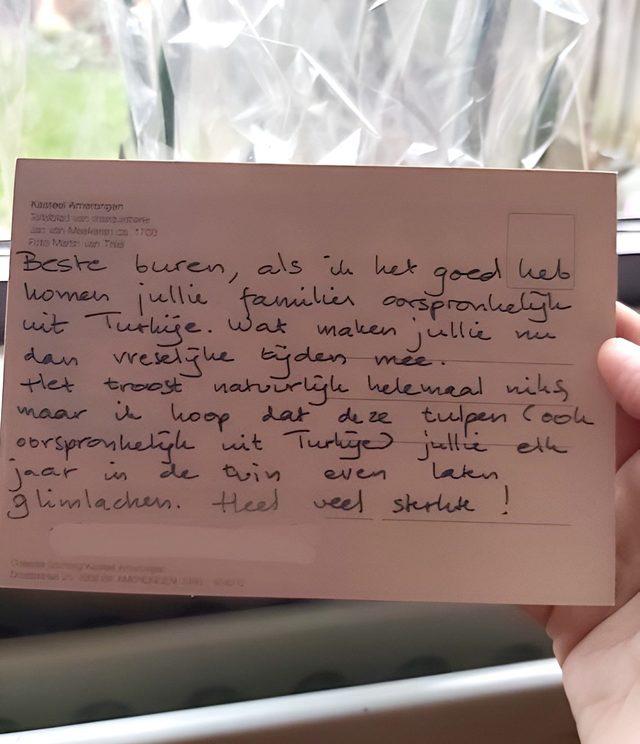 Kasteel Amerongen
Jan van Meekeren ca. 1700
Foto Martin van
Beste buren, als ik het goed heb
komen jullie families oorspronkelijk
uit Turkije. Wat maken jullie nu
dan vreselijke tijden mee.
Het troost natuurlijk helemaal niks,
maar ik hoop dat deze tulpen (ook
oorspronkelijk uit Turkije) jullie elk
jaar in de tuin even laten
glimlachen. Heel veel sterkte!
Kasteel Amerongen